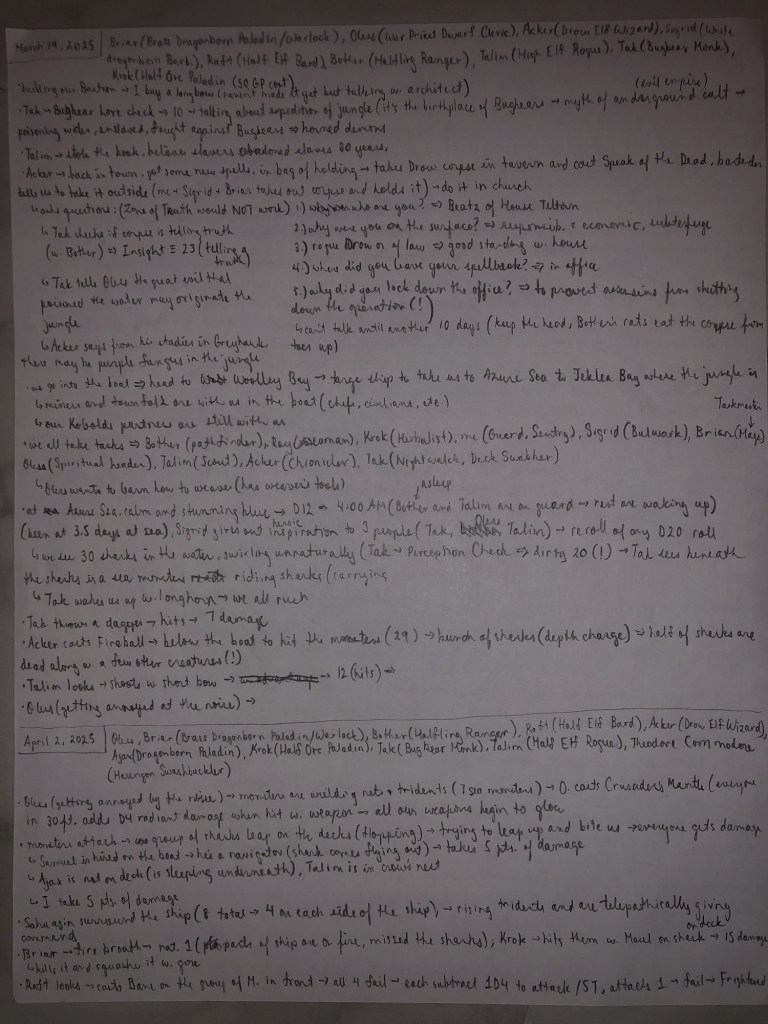 March 19, 2025 | Briar (Brass Dragonborn Paladin/Warlock), Oless (War Priest Dwarf Cleric), Acker (Drow Elf Wizard), Sigrid (White
Dragonborn Barb.), Raft (Half Elf Bard), Bother (Halfling Ranger), Talim (High Elf Rogue), Tak (Bugbear Monk),
Krok (Half Orc Paladin (50 GP cost)
(evil empire)
Bastion → I buy a longbow (haven't made it yet but talking w. architect)
• Tak → Bugbear Lore check → 10 → talking about expedition of jungle (it's the birthplace of Bugbears → myth of an underground cult →
poisoning water, enslaved, fought against Bugbears ⇒ horned demons
• Talim → stole the book, believe slavers abandoned slaves 80 years.
• Acker → back in town, got some new spells, in bag of holding → takes Drow corpse in tavern and cast Speak of the Dead, bartender
tells us to take it outside (me + Sigrid + Brian takes out corpse and holds it) → do it in church
↳ asks questions: (Zone of Truth would NOT work) 1.) who are you? ⇒ of House
↳ Tak checks if corpse is telling truth
(w. Bother) ⇒ Insight = 23 (telling a
truth)
2.) why were you on the surface? ⇒ economic, subterfuge
3.) rogue Drow or of law ⇒ good standing w. house
4.) where did you leave your spellbook? ⇒ in office
5.) why did you lock down the office? ⇒ to prevent assassins from shutting
down the operation (!)
↳ Tak tells Oless the great evil that
poisoned the water may originate the
jungle
↳ can't talk until another 10 days (keep the head, Bother's rats eat the corpse from
toes up)
↳ Acker says from his studies in Greyhawk
there may be purple fungus in the jungle
• we go into the boat ⇒ head to Woolley Bay → large ship to take us to Azure Sea to Jeklea Bay where the jungle is
↳ miners and townfolk are with us in the boat (chefs, civilians, etc.)
↳ our Kobolds partners are still with us
Taskmaster
• we all take tasks ⇒ Bother (pathfinder), Krok (Herbalist), me (Guard, Sentry), Sigrid (Bulwark), Brian
Oless (Spiritual leader), Talim (Scout), Acker (Chronicler), Tak (Nightwatch, Deck Swabber)
↳ Oless wants to learn how to weaver (has weaver's tools)
asleep
• at Azure Sea, calm and stunning blue → D12 ⇒ 4:00 AM (Bother and Talim are on guard → rest are waking up)
(been at 3.5 days at sea), Sigrid gives out heroic inspiration to 3 people (Tak, Oless, Talim) → reroll of any D20 roll
↳ we see 30 sharks in the water, swirling unnaturally (Tak → Perception Check ⇒ dirty 20 (!) → Tak sees beneath
the sharks is a sea monsters riding sharks (carrying
↳ Tak wakes us up w. longhorn → we all rush
• Tak throws a dagger → hits → 7 damage
• Acker casts Fireball → below the boat to hit the monsters (29) → bunch of sharks (depth charge) ⇒ half of sharks are
dead along w. a few other creatures (!)
• Talim looks → shoots w. short bow → 12 (hits) ⇒
• Oless (getting annoyed at the noise) →
April 2, 2025 | Oless, Briar (Brass Dragonborn Paladin/Warlock), Bother (Halfling Ranger), Raft (Half Elf Bard), Acker (Drow Elf Wizard),
Ajax (Dragonborn Paladin), Krok (Half Orc Paladin), Tak (Bugbear Monk), Talim (Half Elf Rogue), Theodore Commodore
(Harengon Swashbuckler)
• Oless (getting annoyed by the noise) → monsters are wielding nets + tridents (7 sea monsters) → O. casts Crusader's Mantle (everyone
in 30ft. adds D4 radiant damage when hit w. weapon → all our weapons begin to glow
• monsters attack → group of sharks leap on the decks (flopping) → trying to leap up and bite us → everyone gets damage
↳ Samuel is hired on the boat → he's a navigator (shark comes flying out) → takes 5 pts. of damage
↳ Ajax is not on deck (is sleeping underneath), Talim is in crow's nest
↳ I take 5 pts. of damage
• Sahuagin surround the ship (8 total → 4 on each side of the ship) → rising tridents and are telepathically giving
commands
on deck
• Briar → fire breath → nat. 1 (parts of ship are on fire, missed the sharks); Krok → hits them w. Maul on shark → 15 damage
↳ kills it and squashes it w. gore
• Raft looks → casts Bane on the group of M. in front → all 4 fail → each subtract 1D4 to attack/ST, attacks 1 → fail → Frightened